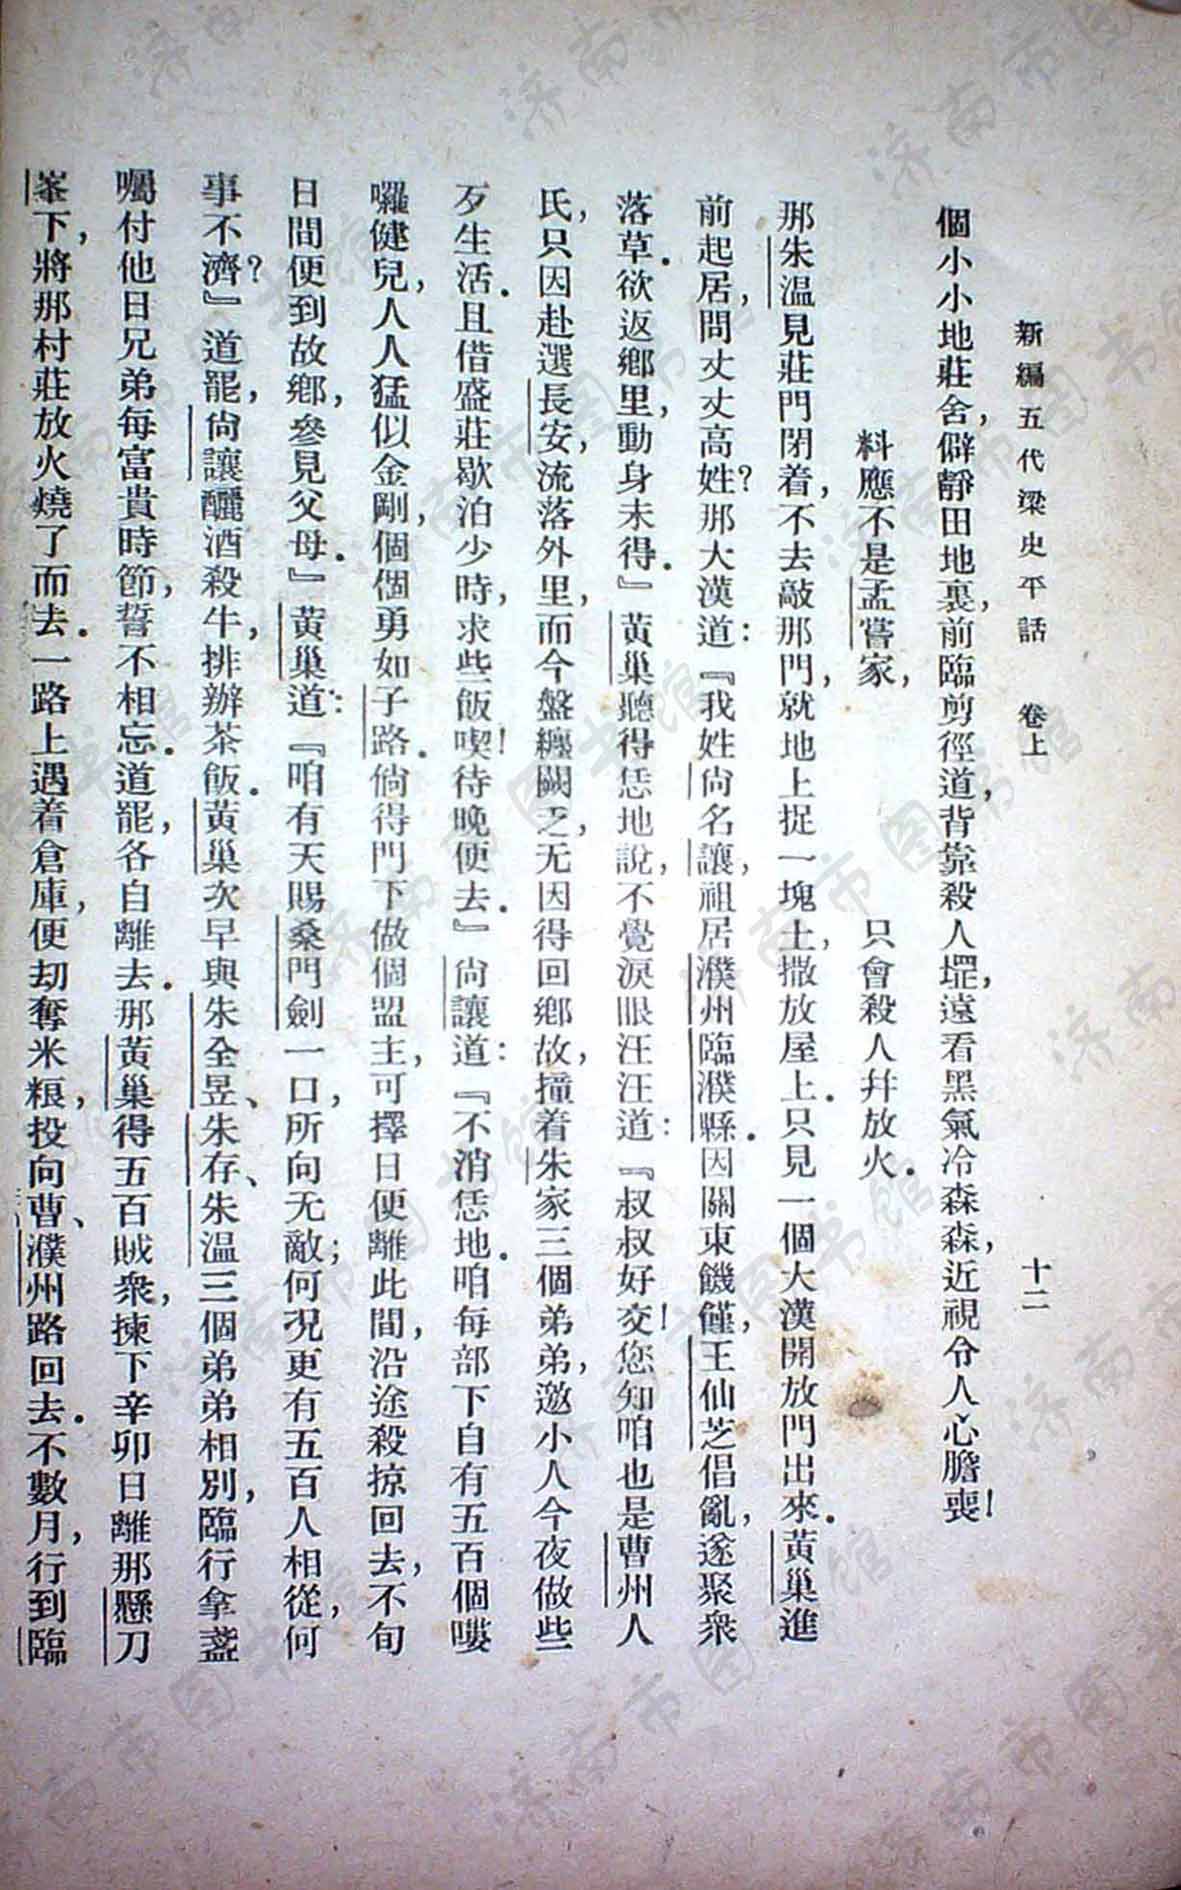 新編五代梁史平話　卷上　十二
個小小地莊舍，僻靜田地裏，前臨剪徑道，背靠殺人堽，遠看黑氣冷森森，近視令人心膽喪！
料應不是孟嘗家，　只會殺人并放火．
那朱溫見莊門閉着，不去敲那門，就地上捉一塊土，撒放屋上．只見一個大漢開放門出來．黃巢進
前起居，問丈丈高姓？那大漢道：『我姓尙名讓，祖居濮州臨濮縣．因關東饑僅，王仙芝倡亂，遂聚衆
落草．欲返鄉里，動身未得．』黃巢聽得恁地說，不覺淚眼汪汪道：『叔叔好交！您知咱也是曹州人
氏，只因赴選長安，流落外里，而今盤纏闕乏，无因得回鄉故，撞着朱家三個弟弟，邀小人今夜做些
歹生活．且借盛莊歇泊少時，求些飯喫！待晚便去．』尙讓道：『不消恁地．咱每部下自有五百個嘍
囉健兒，人人猛似金剛，個個勇如子路．倘得門下做個盟主，可擇日便離此間，沿途殺掠回去，不旬
日間便到故鄉，參見父母．』黃巢道：『咱有天賜桑門劍一口，所向无敵；何況更有五百人相從，何
事不濟？』道罷，尙讓釃酒殺牛，排辦茶飯．黃巢次早與朱全昱、朱存、朱溫三個弟弟相別，臨行拿盞
囑付他日兄弟每富貴時節，誓不相忘．道罷，各自離去．那黃巢得五百賊衆，揀下辛卯日離那懸刀
峯下，將那村莊放火燒了而去．一路上遇着倉庫，便刼奪米粮，投向曹、濮州路回去．不數月，行到臨